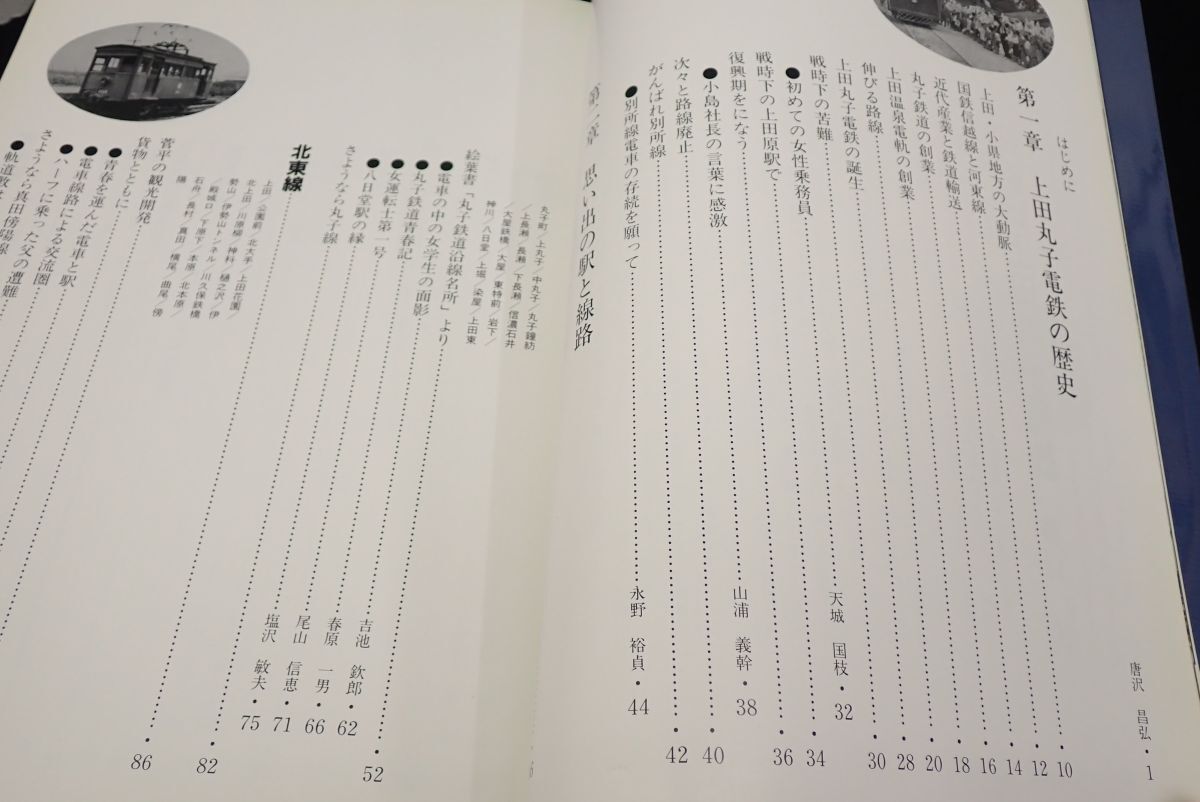 はじめに 唐沢 昌弘・1
第一章 上田丸子電鉄の歴史
上田・小県地方の大動脈・10
国鉄信越線と河東線・12
近代産業と鉄道輸送・14
丸子鉄道の創業・16
上田温泉電軌の創業・18
伸びる路線・20
上田丸子電鉄の誕生・28
戦時下の苦難・30
●初めての女性乗務員 天城 国枝・32
戦時下の上田原駅で・34
復興期をになう・36
●小島社長の言葉に感激 山浦 義幹・38
次々と路線廃止・40
がんばれ別所線・42
●別所線電車の存続を願って 永野 裕貞・44
第二章 思い出の駅と線路
6
丸子町/上丸子/中丸子/丸子鐘紡
/上長瀬/長瀬/下長瀬/信濃石井
/大屋鉄橋/大屋/東特前/岩下/
神川/八日堂/上堀/染屋/上田東
絵葉書「丸子鉄道沿線名所」より・52
●電車の中の女学生の面影 吉池 欽郎・62
●丸子鉄道青春記 春原 一男・66
●女運転士第一号 尾山 信恵・71
●八日堂駅の縁 塩沢 敏夫・75
さようなら丸子線・82
北東線
上田/公園前/北大手/上田花園/
北上田/川原柳/神科/樋之沢/伊
勢山/伊勢山トンネル/川久保鉄橋
/殿城口/下原下/本原/北本原/
石舟/長村/真田/横尾/曲尾/傍
陽
菅平の観光開発・86
貨物とともに
●青春を運んだ電車と駅
●電車線路による交流圏
●ハーフに乗った父の遭難
さようなら真田傍陽線
●軌道敷